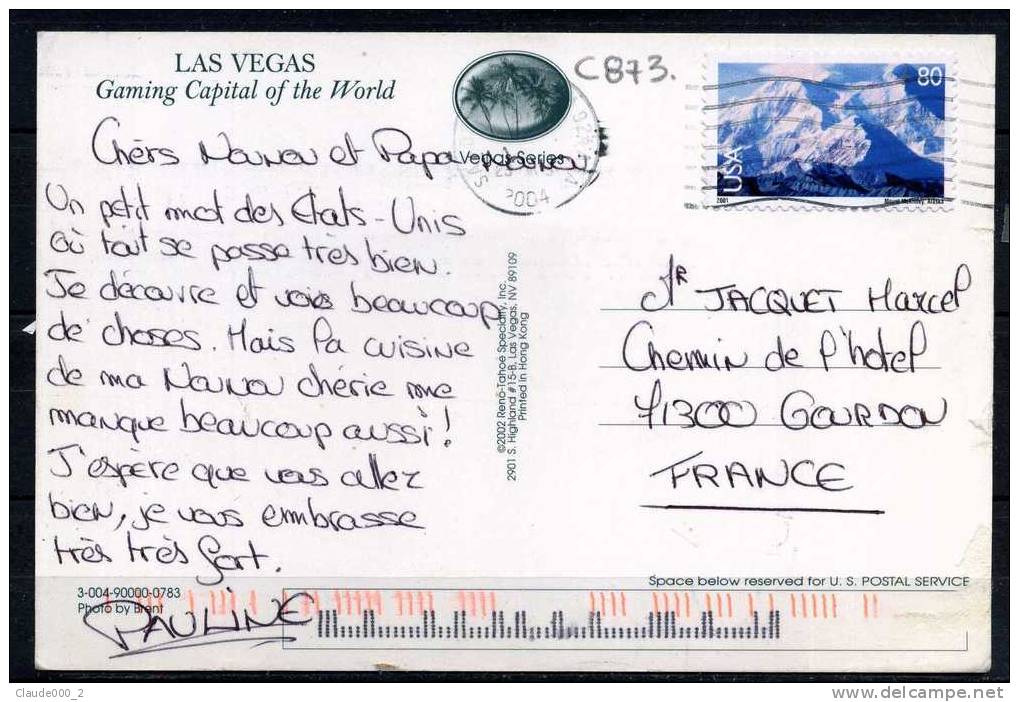 LAS VEGAS
Gaming Capital of the World
C873.
Vegas Series
2004
80
USA
2001
Mount McKinley, Alaska
Chérs Nounou et Papa Nounou
Un petit mot des États-Unis
où tout se passe très bien.
Je découvre et vois beaucoup
de choses. Mais la cuisine
de ma Nounou chérie me
manque beaucoup aussi!
J'espère que vous allez
bien, je vous embrasse
très très fort.
PAULINE
©2002 Reno-Tahoe Specialty, Inc.
2901 S. Highland #15-B, Las Vegas, NV 89109
Printed in Hong Kong
JACQUET Marcel
Chemin de l'hotel
71300 GOURDON
FRANCE
Space below reserved for U. S. POSTAL SERVICE
3-004-90000-0783
Photo by Brent
Claude000_2
www.delcampe.net